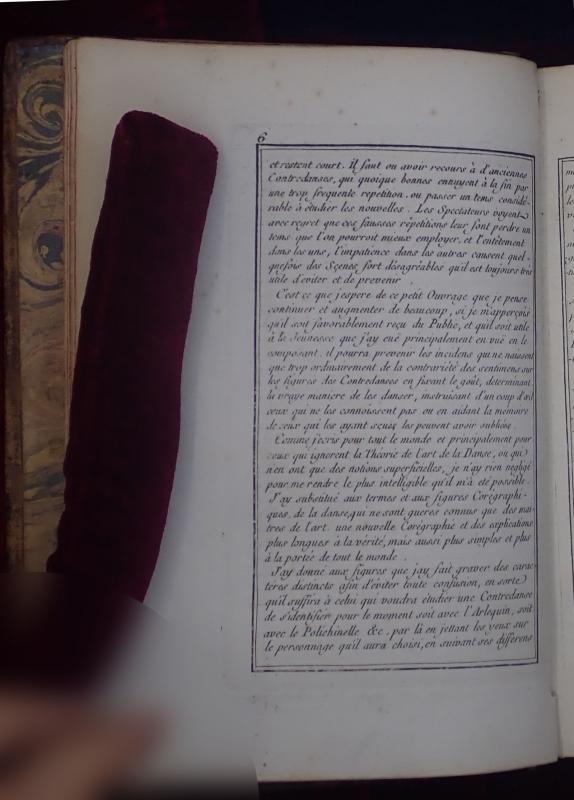 6
et restent court. Il faut ou avoir recours à d'anciennes
Contredanses, qui quoique bonnes ennuyent à la fin par
une trop frequente repetition, ou passer un tems considé-
rable à étudier les nouvelles. Les Spectateurs voyent
avec regret que ces fausses répétitions leur font perdre un
tems que l'on pourroit mieux employer, et l'entêtement
dans les uns, l'impatience dans les autres causent quel-
quefois des Sçenes fort désagréables qu'il est toujours très
utile d'éviter et de prevenir.
C'est ce que j'espere de ce petit Ouvrage que je pense
continuer et augmenter de beaucoup, si je m'apperçois
qu'il soit favorablement reçu du Public, et qu'il soit utile
à la Jeunesse que j'ay eüe principalement en vuë en le
composant. il pourra prevenir les incidens qui ne naissent
que trop ordinairement de la contrarieté des sentimens sur
les figures des Contredanses en fixant le goût, determinant
la vraye maniere de les danser, instruisant d'un coup d'œil
ceux qui ne les connoissent pas ou en aidant la mémoire
de ceux qui les ayant sçues les peuvent avoir oubliées.
Comme j'ecris pour tout le monde et principalement pour
ceux qui ignorent la Théorie de l'art de la Danse, ou qui
n'en ont que des notions superficielles, je n'ay rien negligé
pour me rendre le plus intelligible qu'il m'a été possible.
J'ay substitué aux termes et aux figures Corégraphi-
ques, de la danse, qui ne sont gueres connus que des maî-
tres de l'art. une nouvelle Corégraphie et des explications
plus longues à la vérité, mais aussi plus simples et plus
à la portée de tout le monde.
J'ay donné aux figures que j'ay fait graver des carac-
tères distincts afin d'éviter toute confusion, en sorte
qu'il suffira à celui qui voudra étudier une Contredanse
de s'identifier pour le moment soit avec l'Arlequin, soit
avec le Polichinelle &c. par là en jettant les yeux sur
le personnage qu'il aura choisi, en suivant ses differens